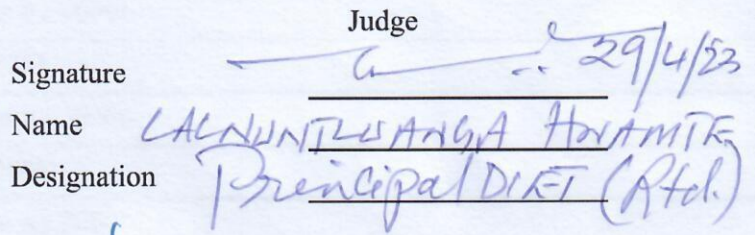 Judge
Signature 29/4/23
Name LALNUNTLUANGA HNAMTE
Designation Principal DIET (Rtd.)